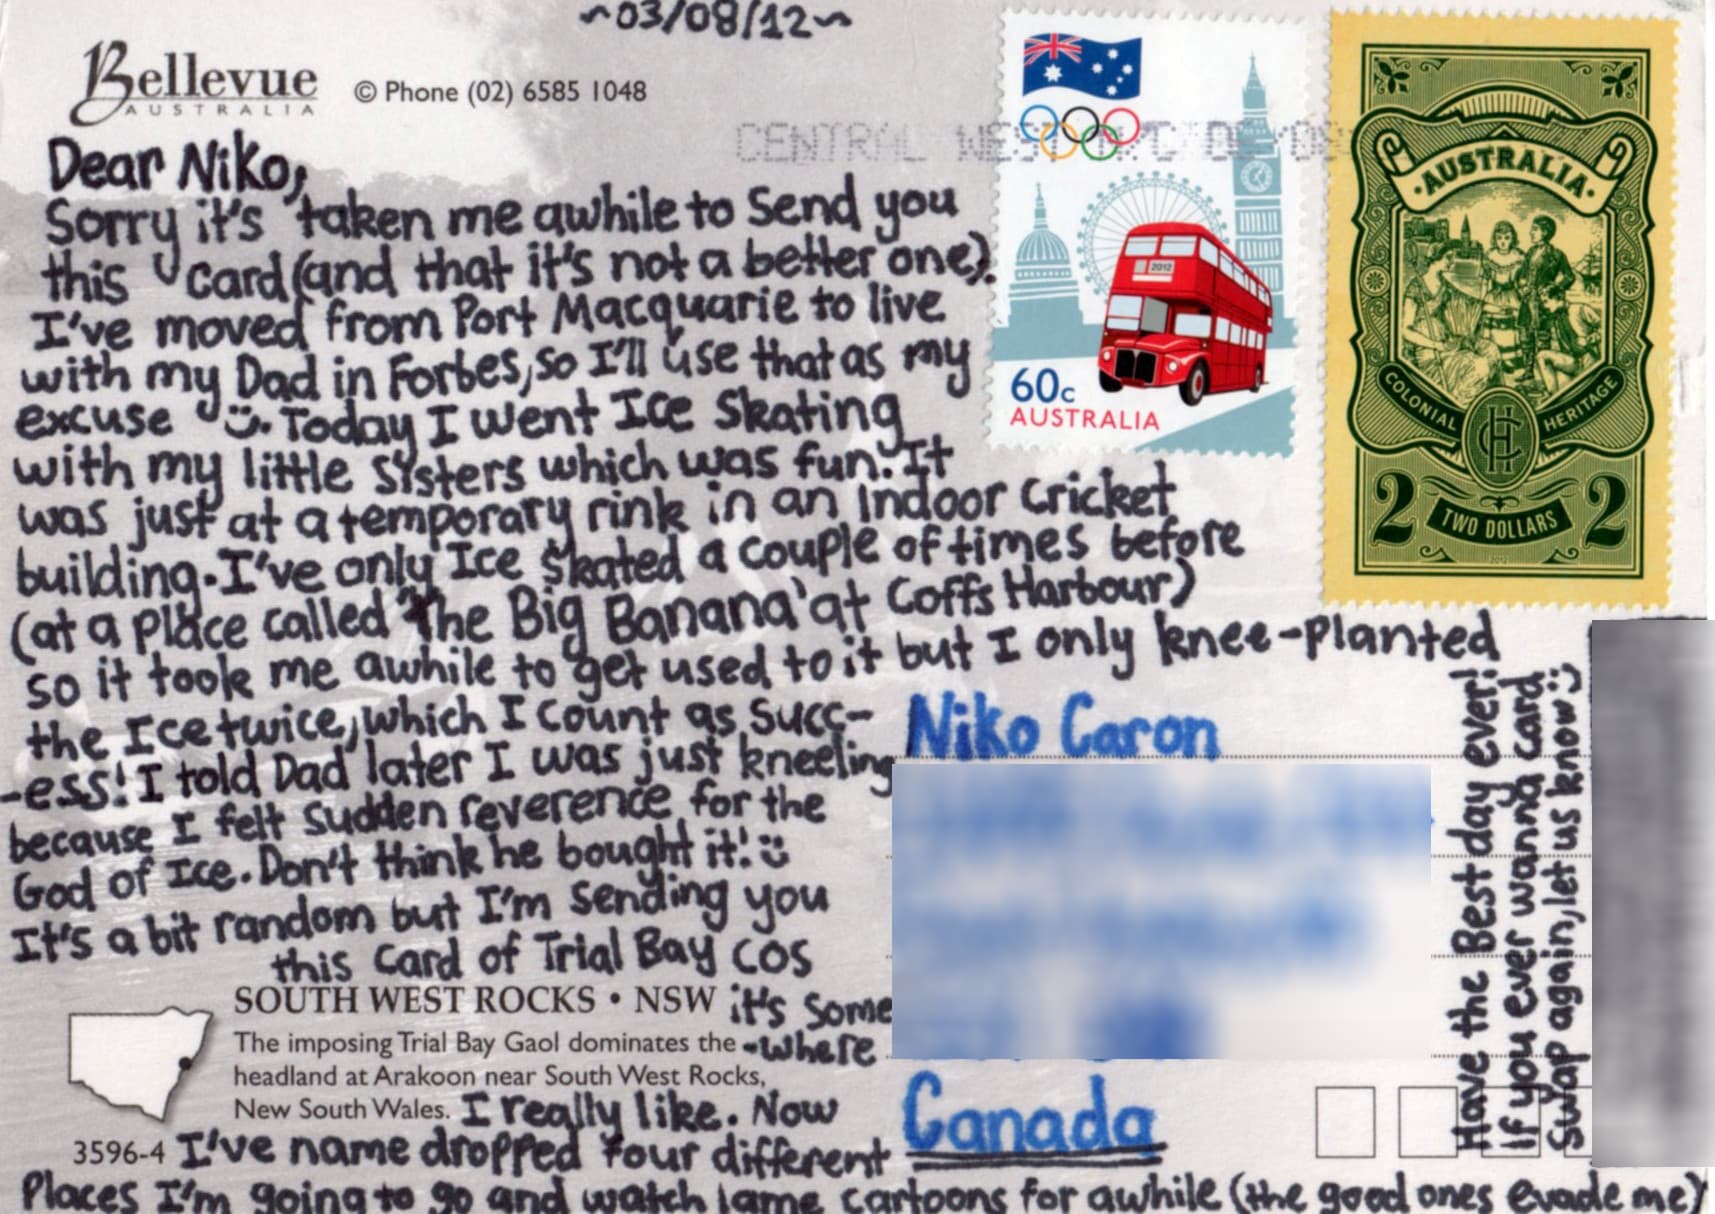 ~03/08/12~
Bellevue
AUSTRALIA
© Phone (02) 6585 1048
CENTRAL WEST
Dear Niko,
Sorry it's taken me awhile to send you
this card (and that it's not a better one).
I've moved from Port Macquarie to live
with my Dad in Forbes, so I'll use that as my
excuse Ü. Today I went Ice Skating
with my little sisters which was fun. It
was just at a temporary rink in an Indoor Cricket
building. I've only Ice Skated a couple of times before
(at a place called 'The Big Banana' at Coffs Harbour)
so it took me awhile to get used to it but I only knee-planted
the Ice twice, which I count as succ-
-ess! I told Dad later I was just kneeling
because I felt sudden reverence for the
God of Ice. Don't think he bought it! Ü
It's a bit random but I'm sending you
this card of Trial Bay cos
it's some
-where
I really like. Now
I've name dropped four different
places I'm going to go and watch lame cartoons for awhile (the good ones evade me)
SOUTH WEST ROCKS • NSW
The imposing Trial Bay Gaol dominates the
headland at Arakoon near South West Rocks,
New South Wales.
3596-4
2012
60c
AUSTRALIA
AUSTRALIA
COLONIAL HERITAGE
CH
2 TWO DOLLARS 2
Niko Caron
Canada
Have the Best day ever!
If you ever wanna card
swap again, let us know Ü